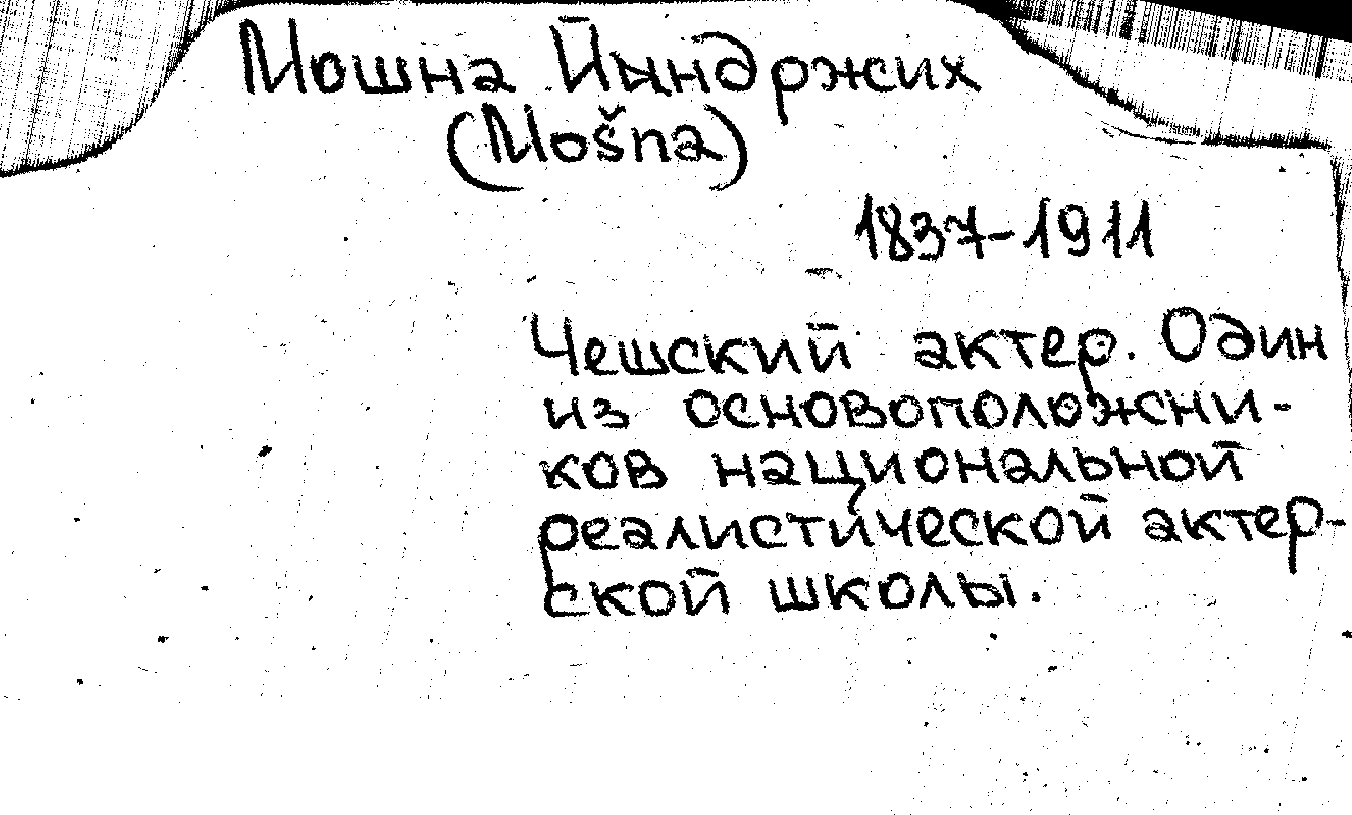 Мошна Йындржих
(Mošna)
1837-1911
Чешский актер. Один
из основоположни-
ков национальной
реалистической актер-
ской школы.